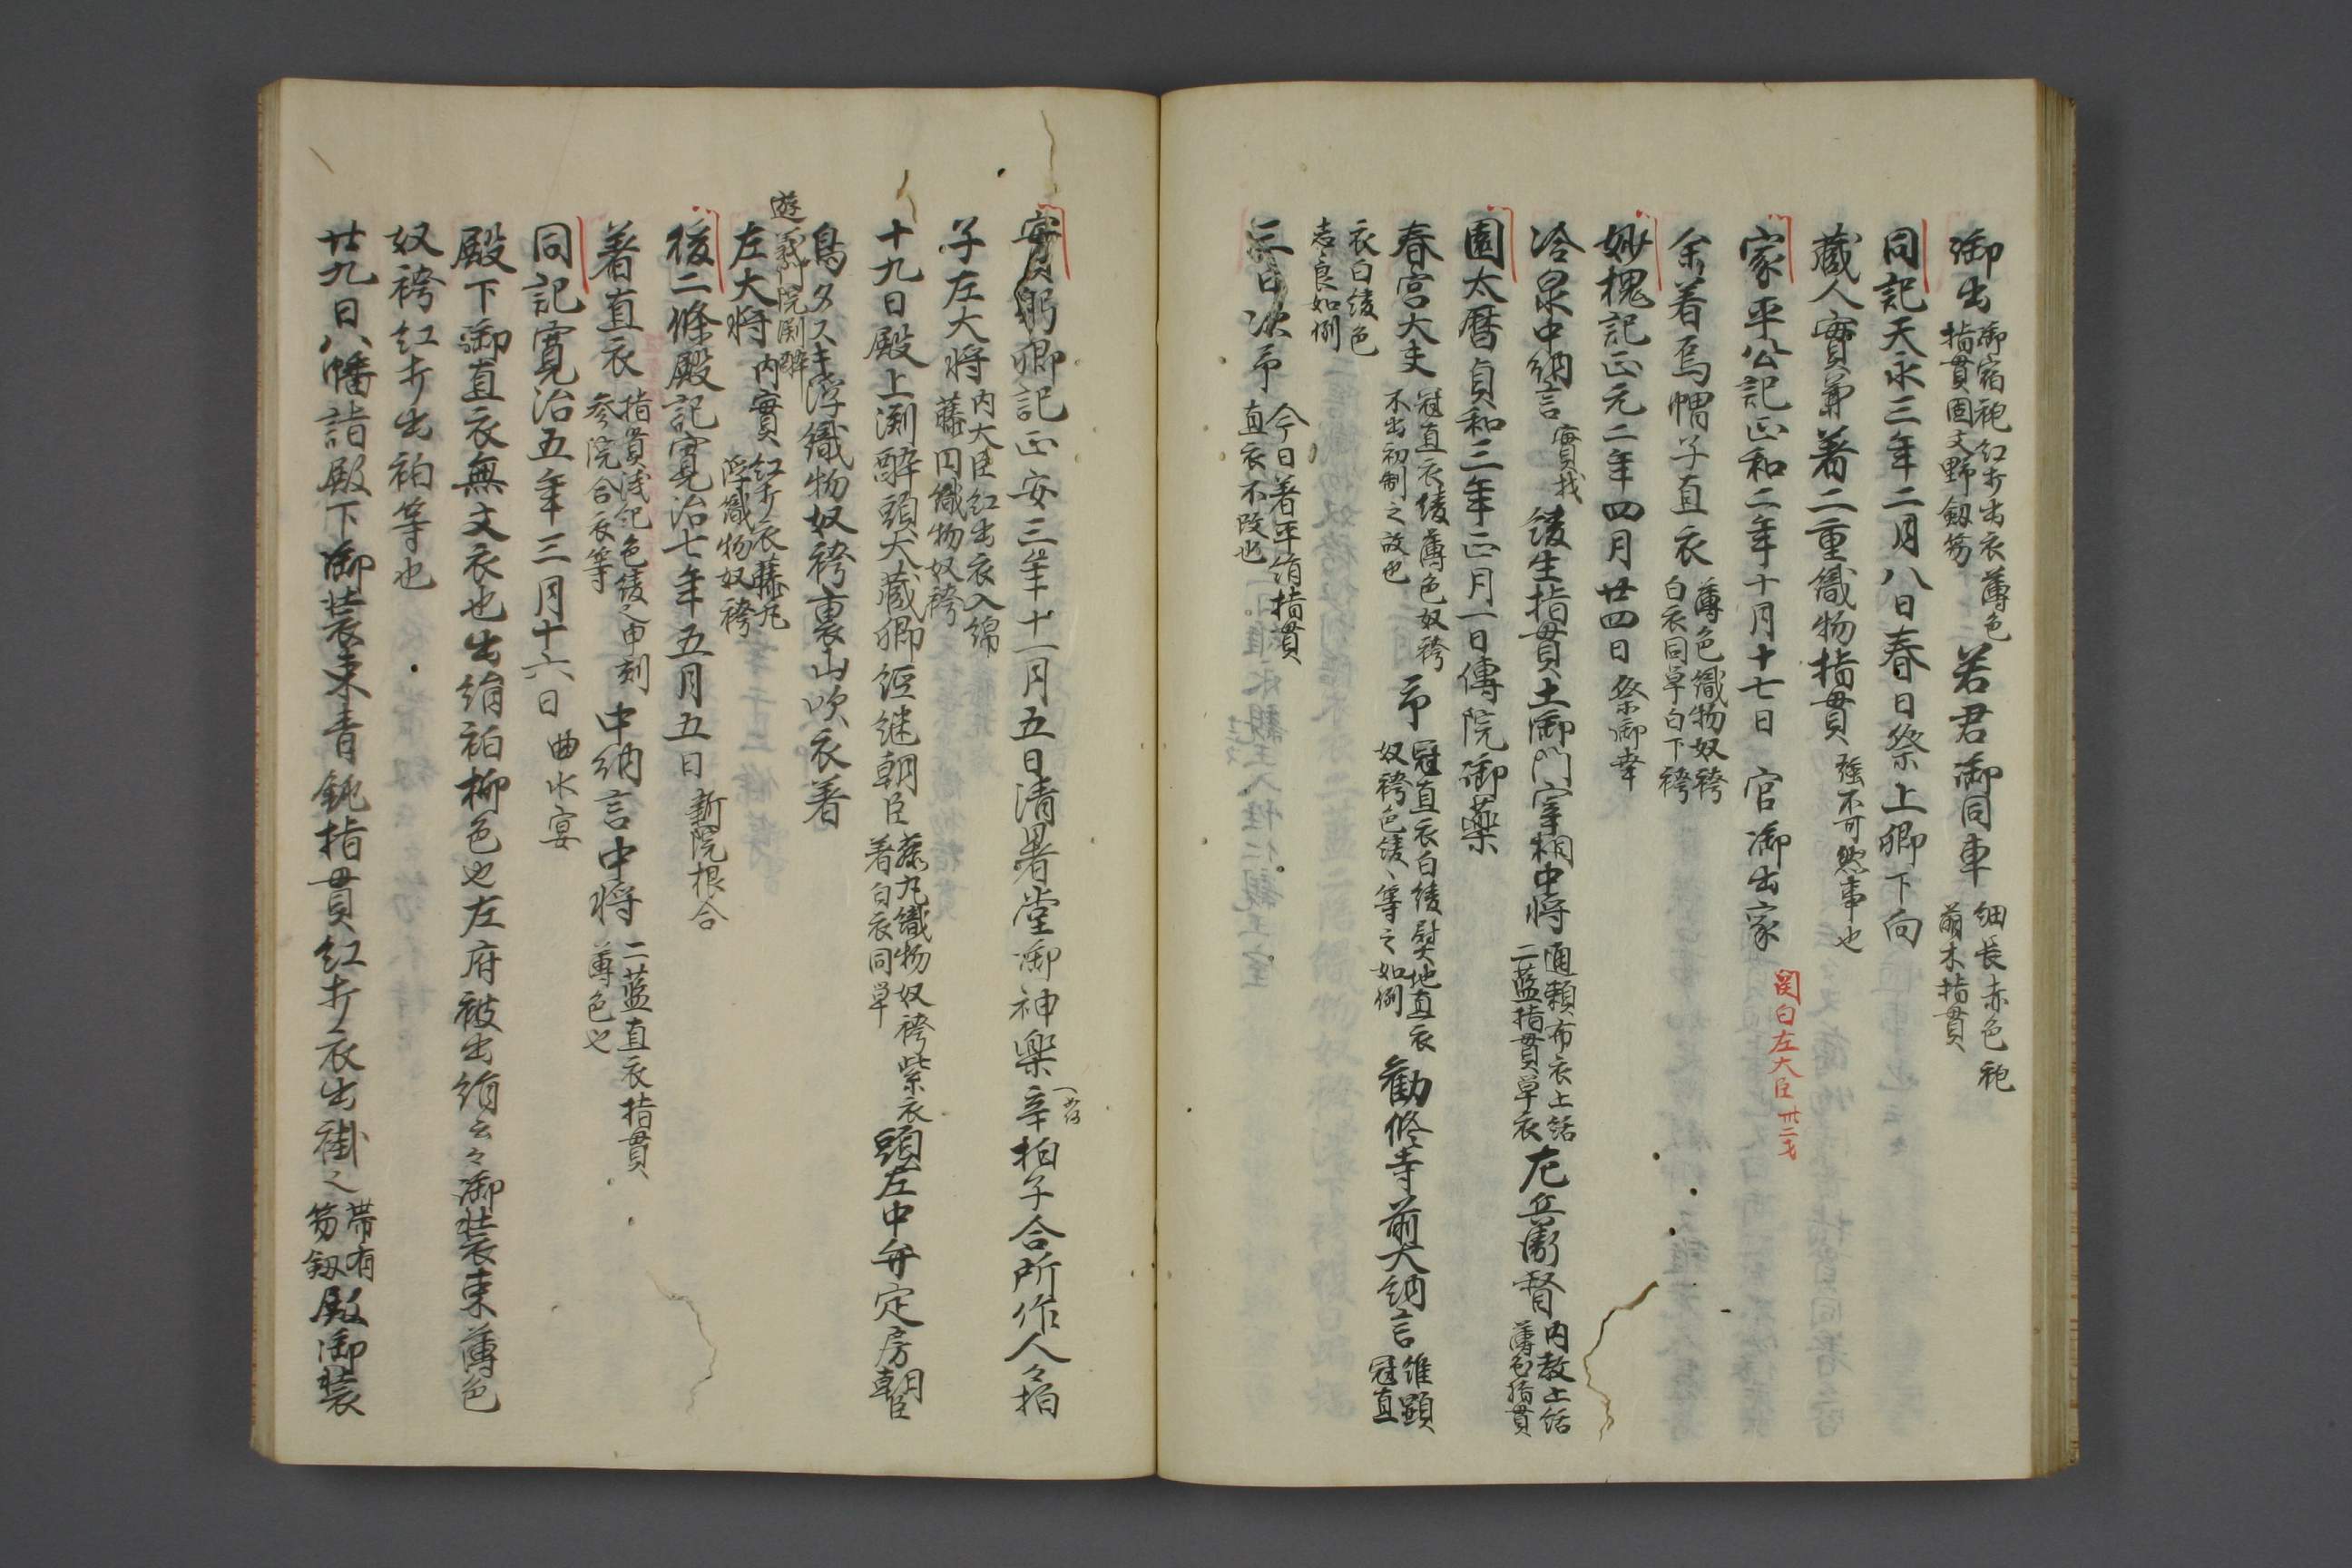 御出 御宿袍紅打出衣薄色 指貫固文野釼笏 若君御同車 細長赤色袍 萠木指貫
同記天永三年二月八日春日祭上卿下向
蔵人實兼着二重織物指貫 強不可然事也
家平公記正和二年十月十七日 官御出家 関白左大臣卅二才
余着烏帽子直衣 薄色織物奴袴 白衣同単白下袴
妙槐記正元二年四月廿四日 祭御幸
冷泉中納言 綾生指貫土御門宰相中将 通頼布衣上括 二藍指貫単衣 左兵衛督 内教上括 薄色指貫
園太暦貞和三年正月一日傳院御薬
春宮大夫 冠直衣綾薄色奴袴 不出初制之故也 予 冠直衣白綾熨地直衣 奴袴色綾、等之如例 勸修寺前大納言 維顕 冠直
衣白綾色 志良如例
三日次予 今日着平絹指貫 直衣不改也
實躬卿記正安三年十一月五日清暑堂御神楽 辛拍子合所作人々拍
子左大将 内大臣紅出衣入綿 藤円織物奴袴
十九日殿上渕酔頭大蔵卿経継朝臣 藤丸織物奴袴紫衣 着白衣同単 頭左中弁定房朝臣
鳥タスキ浮織物奴袴裏山吹衣着
遊義門院渕酔
左大将 内實 紅打衣藤丸 浮織物奴袴
後二條殿記寛治七年五月五日 新院根合
着直衣 指貫浅色綾之申刻 参院合衣等 中納言中将 二藍直衣指貫 薄色也
同記寛治五年三月十六日 曲水宴
殿下御直衣無文衣也出絹袙柳色也左府被出絹云々御装束薄色
奴袴紅打出袙等也
廿九日八幡詣殿下御装束青鈍指貫紅打衣出褂之 帯有 笏釼 殿御装